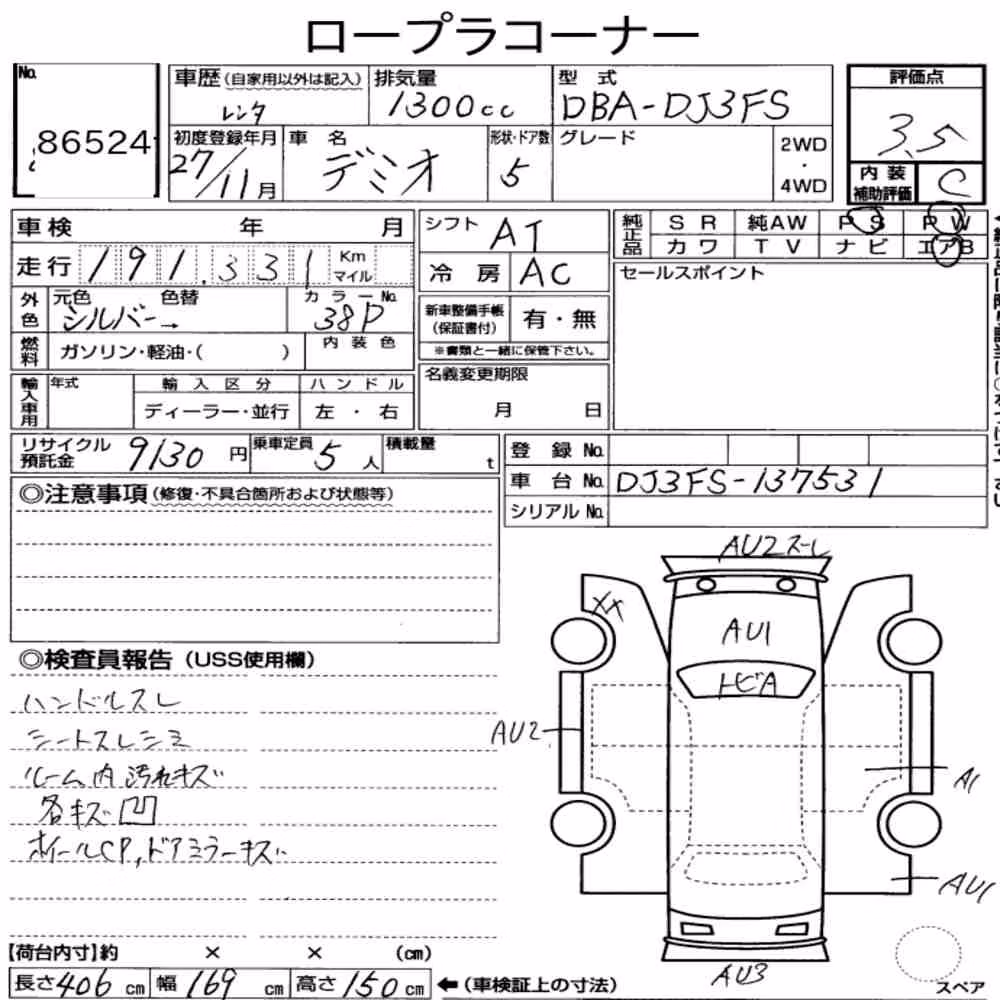 ロープラコーナー
No. 86524
車歴(自家用以外は記入) レンタ
排気量 1300cc
型式 DBA-DJ3FS
評価点 3.5
初度登録年月 27/11月
車名 デミオ
形状・ドア数 5
グレード
2WD・4WD
内装補助評価 C
車検 年 月
シフト AT
純正品 SR 純AW PS PW
カワ TV ナビ エアB
走行 191.331 Km マイル
冷房 AC
セールスポイント
外色 元色 色替 シルバー→
カラーNo. 38P
新車整備手帳(保証書付) 有・無
※書類と一緒に保管下さい。
燃料 ガソリン・軽油・( )
内装色
名義変更期限 月 日
輸入車用 年式 輸入区分 ハンドル
ディーラー・並行 左・右
リサイクル預託金 9130円
乗車定員 5人
積載量 t
登録No.
車台No. DJ3FS-137531
シリアルNo.
◎注意事項(修復・不具合箇所および状態等)
◎検査員報告(USS使用欄)
ハンドルスレ
シートスレシミ
ルーム内汚れキズ
各キズ凹
ホイールCP,ドアミラーキズ
AU2スーレ
XX
AU1
トビA
AU2
A1
AU1
AU3
スペア
【荷台内寸】約 × × (cm)
長さ406cm 幅169cm 高さ150cm ←(車検証上の寸法)